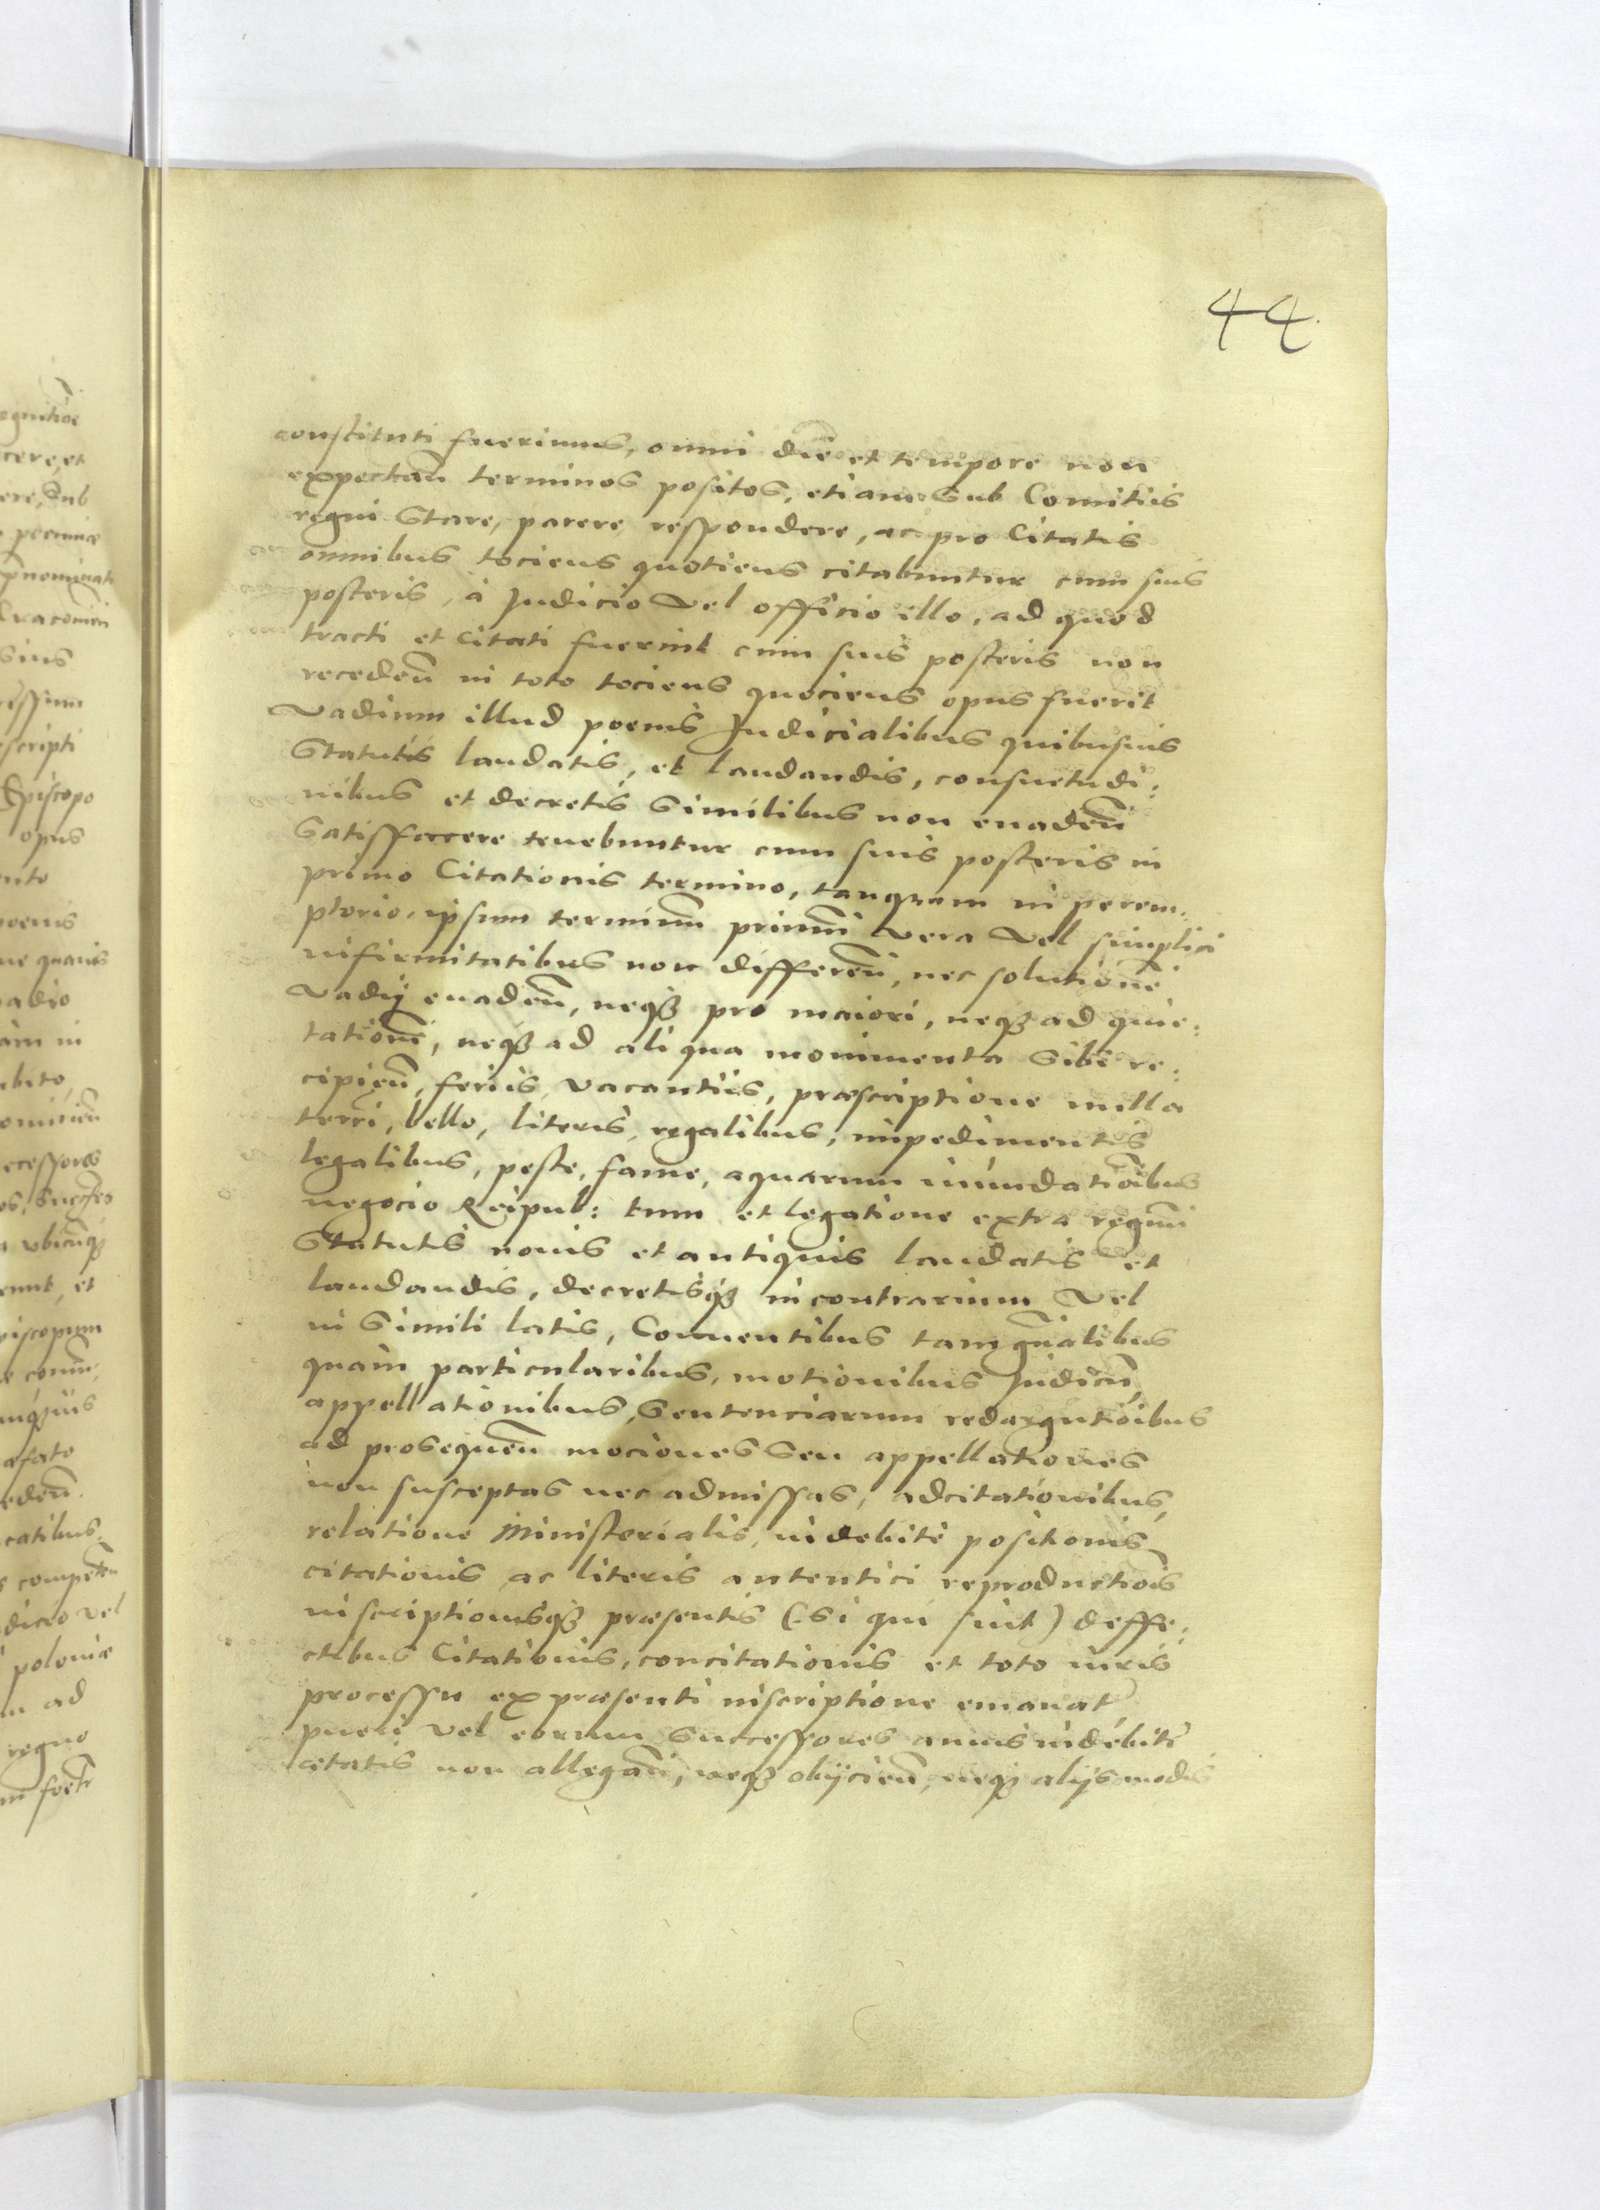 44.
constituti fuerimus, omni die et tempore non
expectan̄ terminos positos, etiam sub Comitiis
regni stare, parere, respondere, ac pro Citatis
omnibus tociens quotiens citabuntur cum suis
posteris, à Judicio vel officio illo, ad quod
tracti et citati fuerint cum suis posteris non
receden̄ in toto tociens quociens opus fuerit
vadium illud poenis Judicialibus quibusvis
statutis laudatis, et laudandis, consuetudi:
nibus et decretis similibus non euaden̄
satisfaccere tenebuntur cum suis posteris in
primo Citationis termino, tanquam in perem:
ptorio, ipsum terminū primū vera vel simplici
infirmitatibus non differen̄, nec solutionē
vadij euaden̄, neqꝫ pro maiori, neqꝫ ad quie:
tationē, neqꝫ ad aliqua monimenta sibi re:
cipien̄, feriis, vacantiis, præscriptione nulla
terri, bello, literis, regalibus, impedimentis
legalibus, peste, fame, aquarum inundatiōibus
negocio Reipub: tum et legatione extra regnū
statutis nouis et antiquis laudatis et
laudandis, decretisqꝫ in contrarium vel
in simili latis, Conuentibus tam gn̄alibus
quam particularibus, motionibus Judicū,
appellationibus, sentenciarum redargutiōibus
ad prosequen̄ mociones seu appellationes
non susceptas nec admissas, adcitationibus,
relatione Ministerialis, indebite positionis
citationis ac literis autentici reproductiōis
inscriptionisqꝫ præsentis (si qui sint) deffe:
ctibus Citationis, concitationis et toto iuris
processu ex præsenti inscriptione emanat
pueri vel eorum successores annis indebite
ætatis non allegan̄, neqꝫ obijcien̄, neqꝫ alijs modis